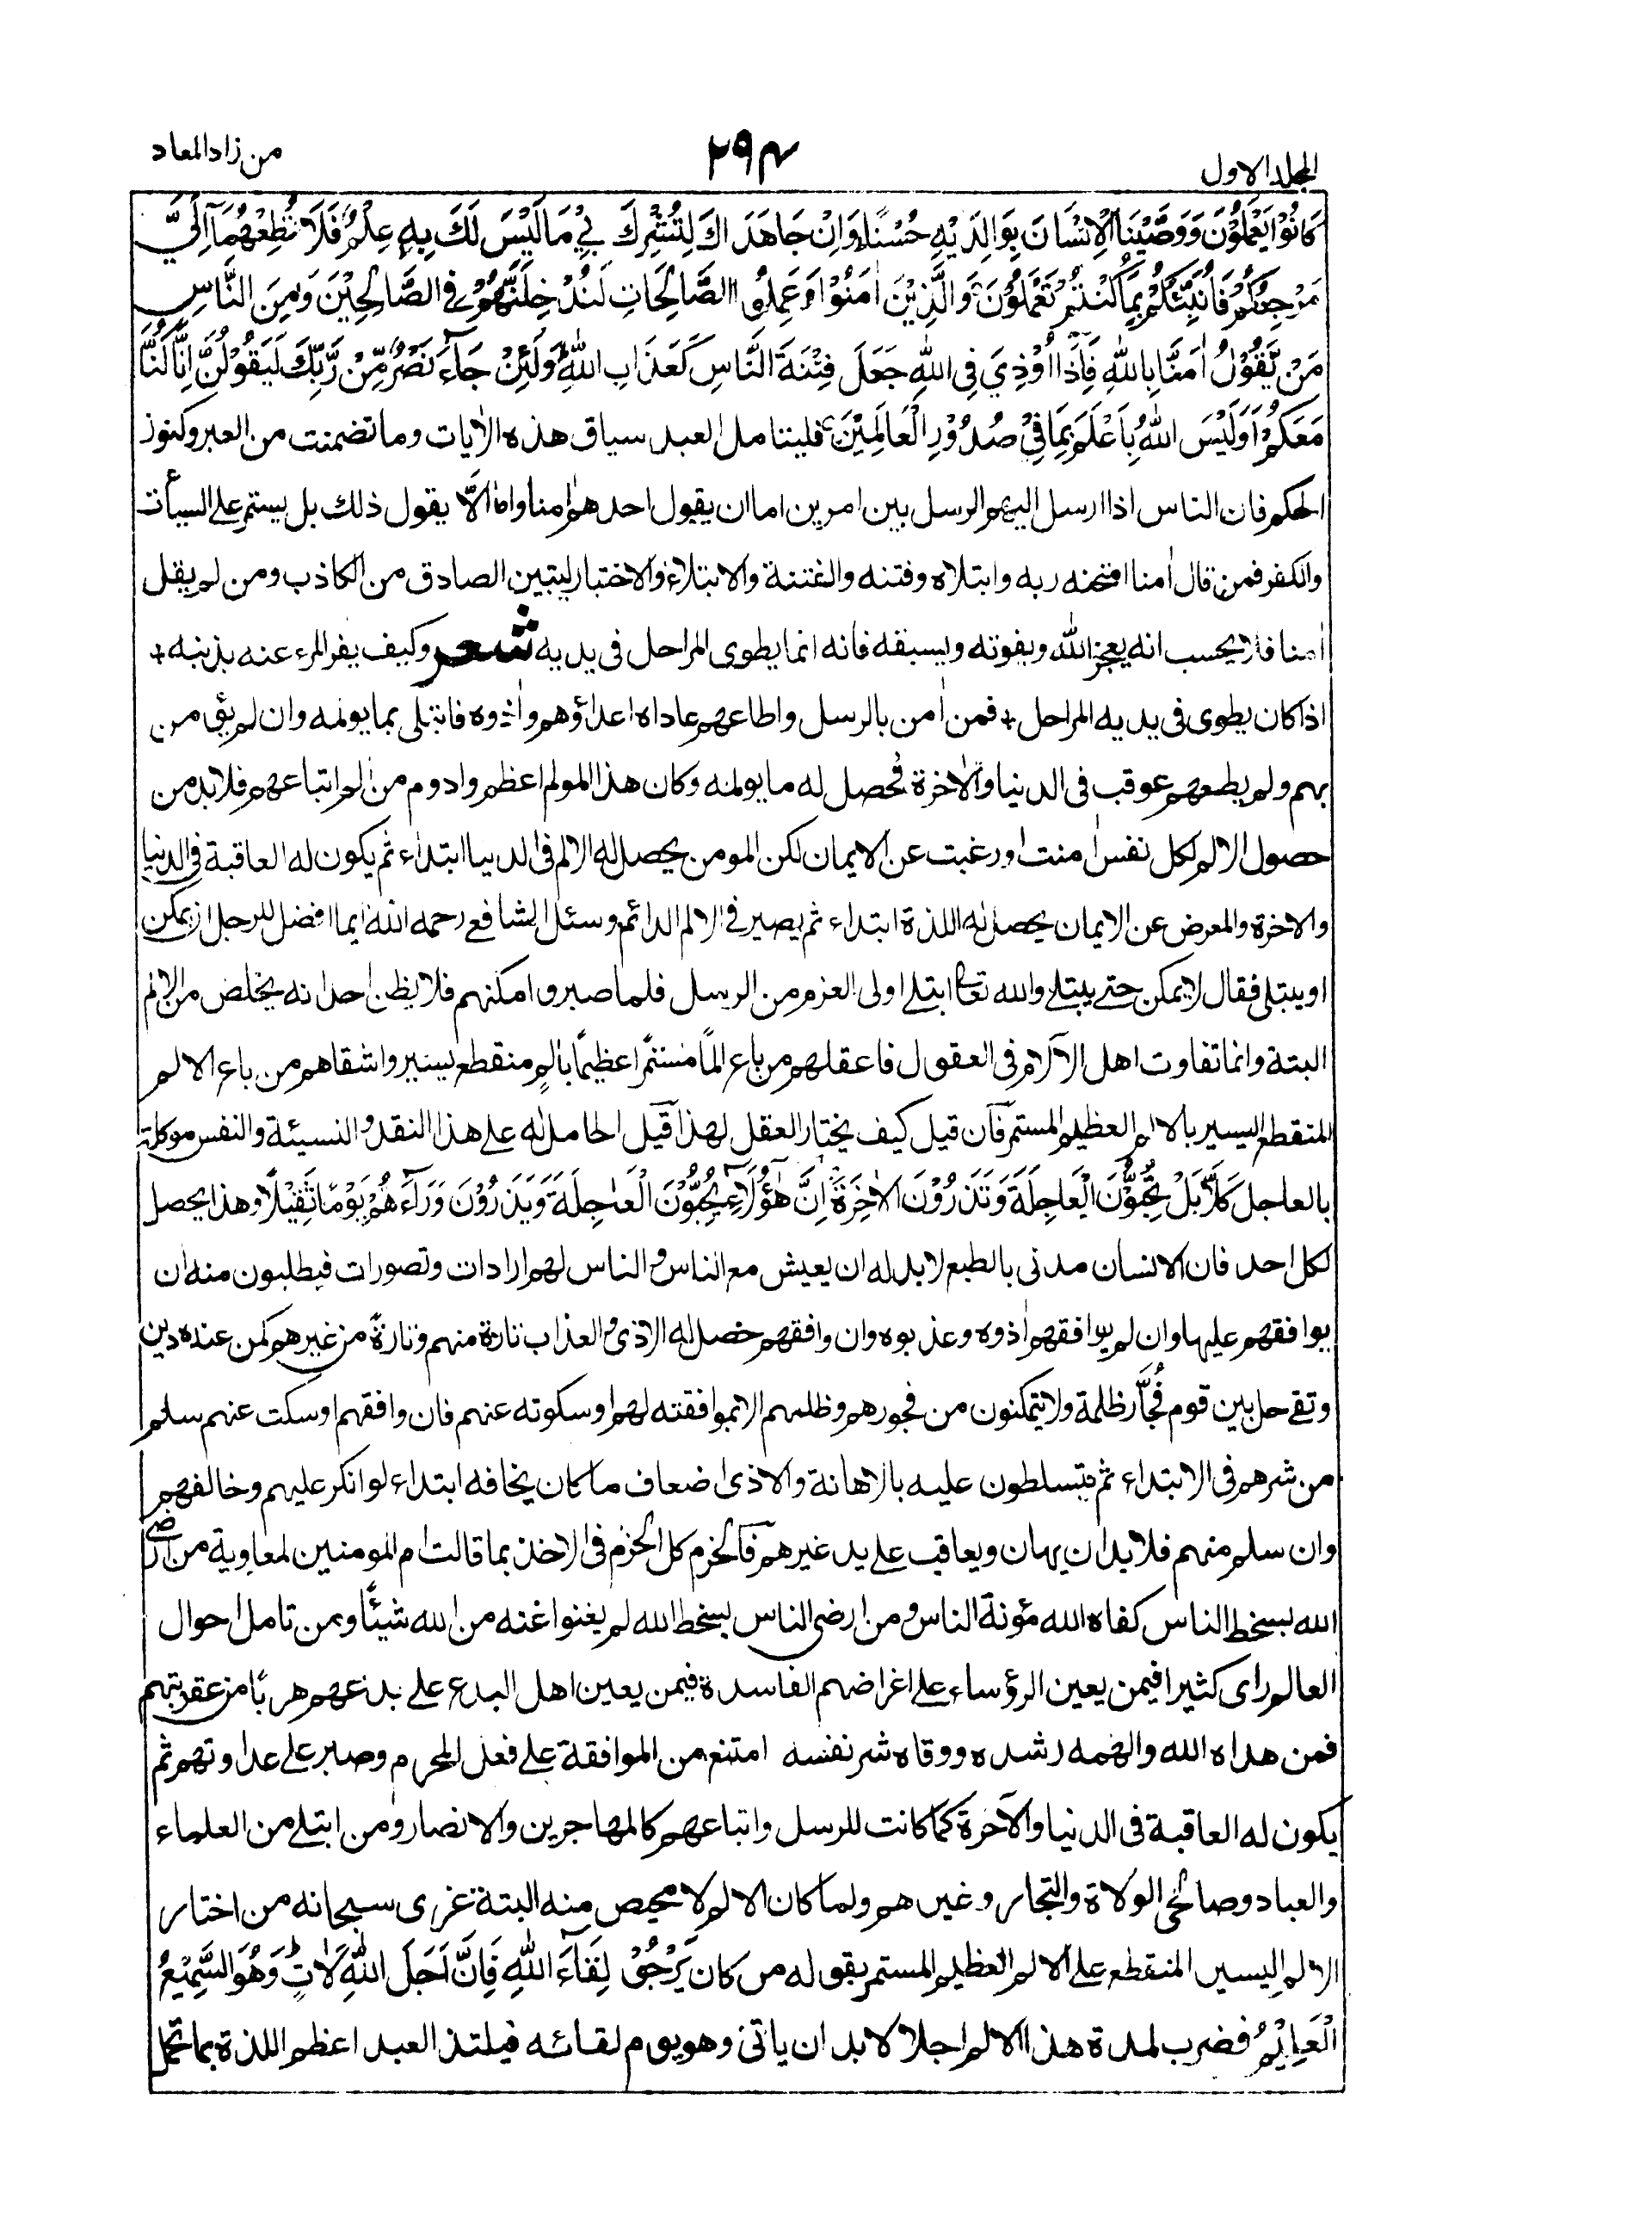 المجلد الاول
۲۹۴
من زاد المعاد
كَانُوْا يَعْمَلُوْنَ وَوَصَّيْنَا الْاِنْسَانَ بِوَالِدَيْهِ حُسْنًا وَاِنْ جَاهَدَاكَ لِتُشْرِكَ بِيْ مَا لَيْسَ لَكَ بِهٖ عِلْمٌ فَلَا تُطِعْهُمَا اِلَيَّ
مَرْجِعُكُمْ فَاُنَبِّئُكُمْ بِمَا كُنْتُمْ تَعْمَلُوْنَ وَالَّذِيْنَ اٰمَنُوْا وَعَمِلُوا الصَّالِحَاتِ لَنُدْخِلَنَّهُمْ فِي الصَّالِحِيْنَ وَمِنَ النَّاسِ
مَنْ يَّقُوْلُ اٰمَنَّا بِاللّٰهِ فَاِذَا اُوْذِيَ فِي اللّٰهِ جَعَلَ فِتْنَةَ النَّاسِ كَعَذَابِ اللّٰهِ وَلَئِنْ جَآءَ نَصْرٌ مِّنْ رَّبِّكَ لَيَقُوْلُنَّ اِنَّا كُنَّا
مَعَكُمْ اَوَلَيْسَ اللّٰهُ بِاَعْلَمَ بِمَا فِيْ صُدُوْرِ الْعَالَمِيْنَ فليتامل العبد سياق هذه الاٰيات وما تضمنت من العبر وكنوز
الحكم فان الناس اذا ارسل اليهم الرسل بين امرين اما ان يقول احدهم اٰمنا واما الّا يقول ذلك بل يستمر على السيأت
والكفر فمن قال اٰمنا امتحنه ربه وابتلاه وفتنه والفتنة والابتلاء والاختبار ليتبين الصادق من الكاذب ومن لم يقل
اٰمنا فلا يحسب انه يعجز الله ويفوته ويسبقه فانه انما يطوى المراحل فى يديه شعر وكيف يفر المرء عنه بذنبه +
اذا كان يطوى فى يديه المراحل + فمن اٰمن بالرسل واطاعهم عاداه اعداؤهم واٰذوه فابتلى بما يولمه وان لم يؤمن
بهم ولم يطعهم عوقب فى الدنيا والاٰخرة فحصل له ما يولمه وكان هذا المولم اعظم وادوم من الم اتباعهم فلا بد من
حصول الالم لكل نفس اٰمنت او رغبت عن الايمان لكن المومن يحصل له الالم فى الدنيا ابتداء ثم يكون له العاقبة فى الدنيا
والاخرة والمعرض عن الايمان يحصل له اللذة ابتداء ثم يصير فى الالم الدائم وسئل الشافعے رحمه الله ايما افضل للرجل ان يمكن
او يبتلى فقال لا يمكن حتے يبتلے والله تعالى ابتلے اولى العزم من الرسل فلما صبروا مكنهم فلا يظن احد انه يخلص من الالم
البتة وانما تفاوت اهل الآلام فى العقول فاعقلهم من باع المًا مستمرًا عظيمًا بالمٍ منقطع يسير واشقاهم من باع الالم
المنقطع اليسير بالالم العظيم المستمر فان قيل كيف يختار العقل لهذا قيل الحامل له على هذا النقد والنسيئة والنفس موكلة
بالعاجل كَلَّا بَلْ تُحِبُّوْنَ الْعَاجِلَةَ وَتَذَرُوْنَ الْاٰخِرَةَ اِنَّ هٰؤُلَاءِ يُحِبُّوْنَ الْعَاجِلَةَ وَيَذَرُوْنَ وَرَآءَهُمْ يَوْمًا ثَقِيْلًا وهذا يحصل
لكل احد فان الانسان مدنى بالطبع لا بد له ان يعيش مع الناس والناس لهم ارادات وتصورات فيطلبون منه ان
يوافقهم عليها وان لم يوافقهم اٰذوه وعذبوه وان وافقهم حصل له الاذى والعذاب تارة منهم وتارة من غيرهم كمن عنده دين
وتقے حل بين قوم فُجَّار ظلمة ولا يتمكنون من فجورهم وظلمهم الا بموافقته لهم او سكوته عنهم فان وافقهم او سكت عنهم سلم
من شرهم فى الابتداء ثم يتسلطون عليه بالاهانة والاذى اضعاف ما كان يخافه ابتداء لو انكر عليهم وخالفهم
وان سلم منهم فلا بد ان يهان ويعاقب على يد غيرهم فالحزم كل الحزم فى الاخذ بما قالت ام المومنين لمعاوية من ارضى
الله بسخط الناس كفاه الله مؤنة الناس ومن ارضى الناس بسخط الله لم يغنوا عنه من الله شيئًا ومن تامل احوال
العالم راى كثيرا فيمن يعين الرؤساء على اغراضهم الفاسدة فيمن يعين اهل البدع على بدعهم هربًا من عقوبتهم
فمن هداه الله والهمه رشده ووقاه شر نفسه امتنع من الموافقة على فعل المحرم وصبر على عداوتهم ثم
يكون له العاقبة فى الدنيا والآخرة كما كانت للرسل واتباعهم كالمهاجرين والانصار ومن ابتلے من العلماء
والعباد وصالحى الولاة والتجار وغيرهم ولما كان الالم لا محيص منه البتة عزى سبحانه من اختار
الالم اليسير المنقطع على الالم العظيم المستمر بقوله من كان يَرْجُوْ لِقَآءَ اللّٰهِ فَاِنَّ اَجَلَ اللّٰهِ لَاٰتٍ وَهُوَ السَّمِيْعُ
الْعَلِيْمُ فضرب لمدة هذا الالم اجلا لا بد ان ياتى وهو يوم لقائه فيلتذ العبد اعظم اللذة بما تحمل